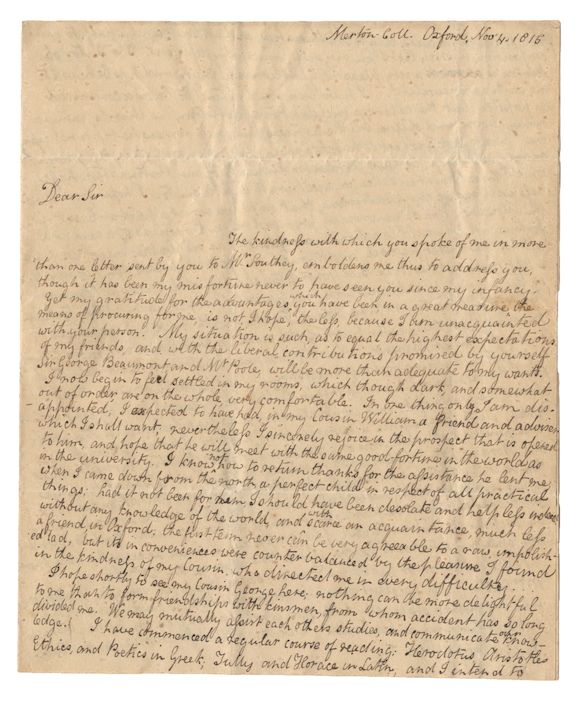 Merton Coll. Oxford, Nov 4. 1815
Dear Sir
The kindness with which you spoke of me in more
than one letter sent by you to Mr Southey, emboldens me thus to address you,
though it has been my misfortune never to have seen you since my infancy.
Yet my gratitude for the advantages, which you have been in a great measure the
means of procuring for me, is not I hope, the less, because I am unacquainted
with your person. My situation is such, as to equal the highest expectations
of my friends, and with the liberal contributions promised by yourself
Sir George Beaumont and Mr Poole, will be more than adequate to my wants.
I now begin to feel settled in my rooms, which though dark, and somewhat
out of order are on the whole very comfortable. In one thing only I am dis-
appointed, I expected to have had in my Cousin William a friend and adviser
which I shall want, nevertheless I sincerely rejoice in the prospect that is opened
to him, and hope that he will meet with the same good fortune in the world as
in the university. I know not how to return thanks for the assistance he lent me
when I came down from the north a perfect child in respect of all practical
things: had it not been for him I should have been desolate and helpless indeed
without any knowledge of the world, and with scarce an acquaintance, much less
a friend in Oxford; the first term never can be very agreeable to a raw, unpolish-
ed lad, but its inconveniences were counterbalanced by the pleasure I found
in the kindness of my cousin, who directed me in every difficulty.
I hope shortly to see my cousin George here; nothing can be more delightful
to me than to form friendships with kinsmen from whom accident has so long
divided me. We may mutually assist each others studies, and communicate our know-
ledge. I have commenced a regular course of reading; Herodotus Aristotles
Ethics, and Poetics in Greek; Tully and Horace in Latin, and I intend to